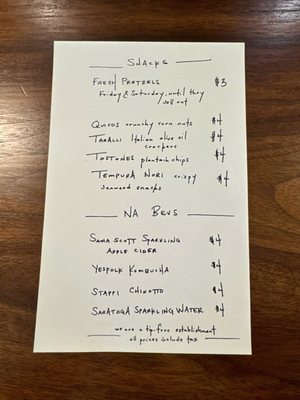 SNACKS
FRESH PRETZELS $3
Friday & Saturday, until they
sell out
QUICOS crunchy corn nuts $4
TARALLI Italian olive oil $4
crackers
TOSTONES plantain chips $4
TEMPURA NORI crispy $4
seaweed snacks
NA BEVS
SAMA SCOTT SPARKLING $4
APPLE CIDER
YESFOLK KOMBUCHA $4
STAPPI CHINOTTO $4
SARATOGA SPARKLING WATER $4
we are a tip-free establishment
all prices include tax